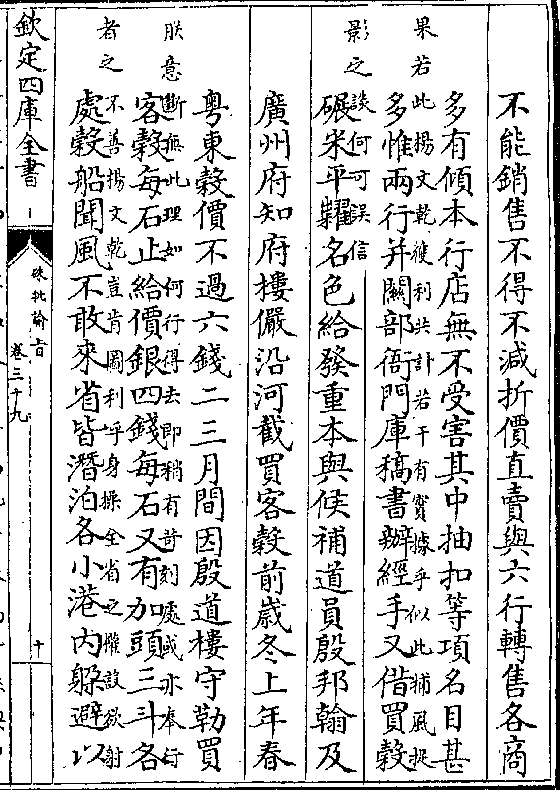 不能銷售不得不減折價直賣與六行轉售各商
多有傾本行店無不受害其中抽扣等項名目甚
果若此揚文乾獲利共計若干有實據乎似此捕風捉
多惟兩行并關部衙門庫稿書辦經手又借買穀
影之談何可誤信
碾米平糶名色給發重本與候補道員殷邦翰及
廣州府知府樓儼沿河截買客穀前歲冬上年春
粤東穀價不過六錢二三月間因殷道樓守勒買
朕意斷無此理如何行得去即稍有苛刻處或亦奉行
客穀每石止給價銀四錢每石又有加頭三斗各
者之不善揚文乾豈肯圖利乎身操全省之權設欲射
處穀船聞風不敢來省皆潛泊各小港内躲避以
欽定四庫全書
硃批諭旨
卷三十九
十